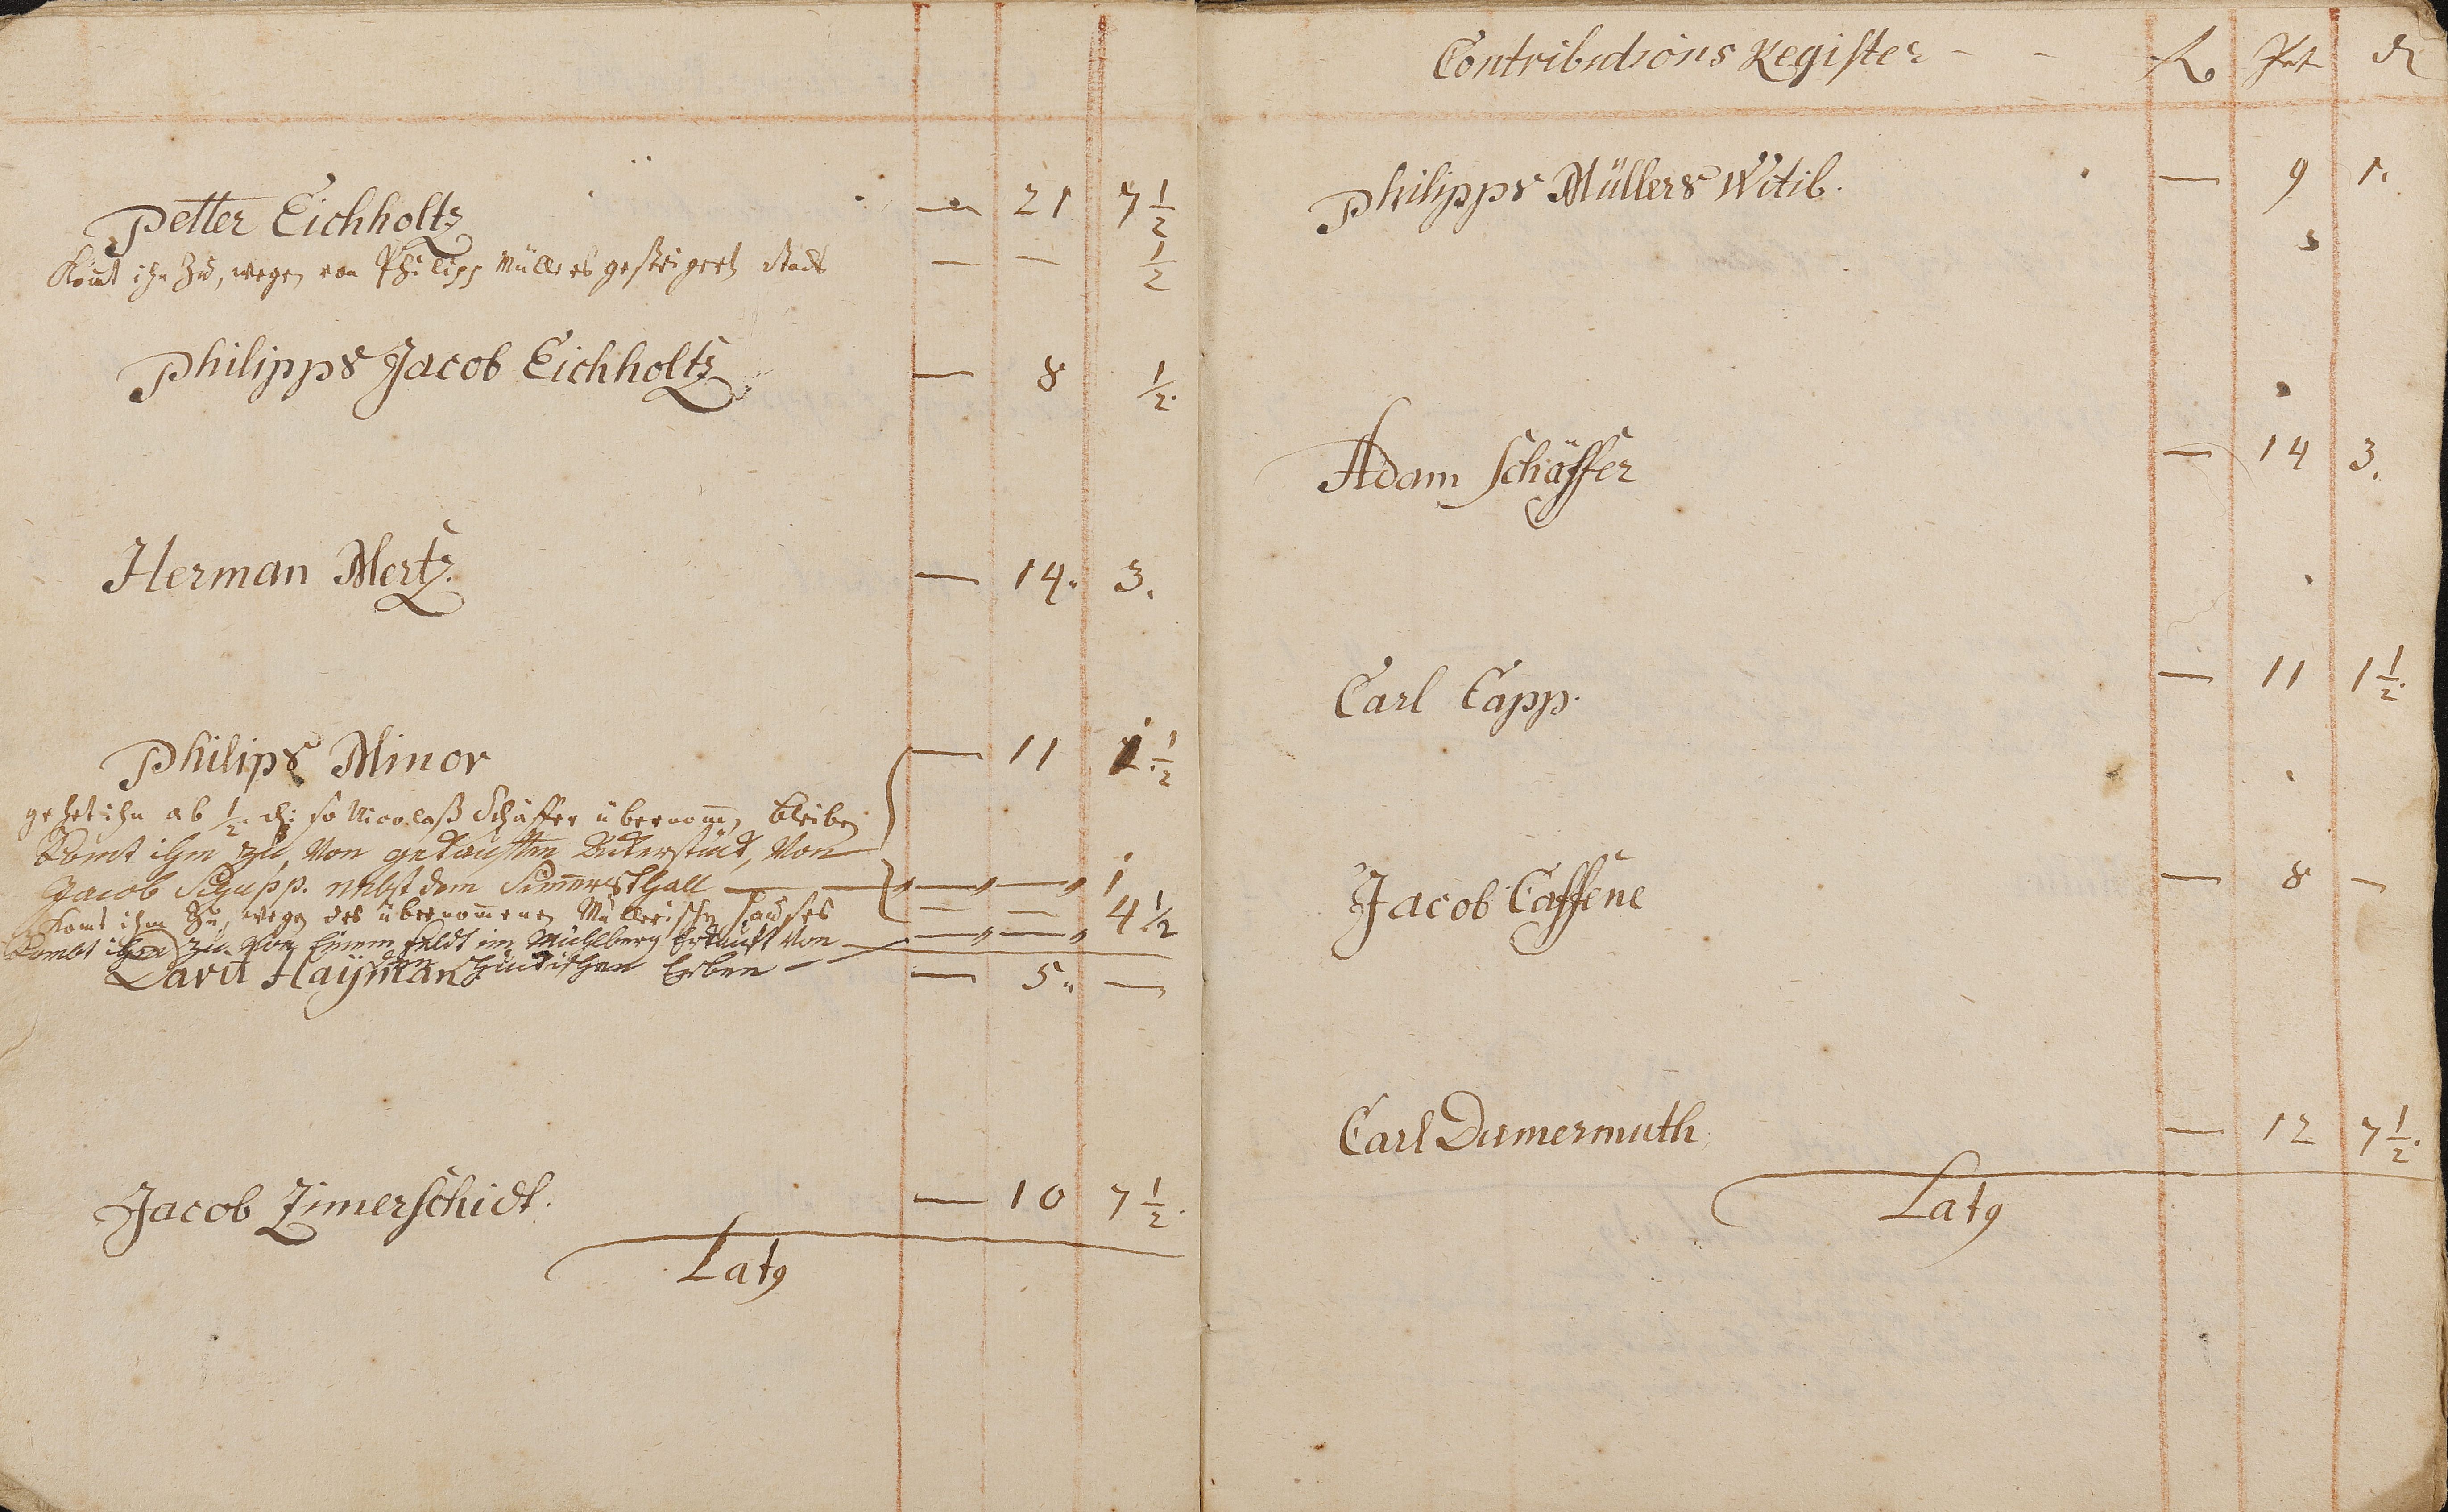 Petter Eichholtz — 21 7 1/2
Kom̄t ihn Zu, wegen von Philipp Müllers gesteigert — — 1/2
Philipps Jacob Eichholtz — 8 1/2.
Herman Mertz. — 14. 3.
Philips Minor — 11 1 1/2
gehet ihn ab 1/2. so Nicolaß Schäffer übernom̄en bleiben
Komt ihm zu, Von gekaufften Ackerstück, Von
Jacob nebst dem — — 1
Komt ihm Zu, wegen des übernom̄enen Müllerischen Hauses — — 4 1/2
Kombt ihm zu Von Einem feldt im Mühlberg Erkauft Von — —
den Erben
Davit Haÿman — 5. —
Jacob Zimerschidt. — 10 7 1/2.
Latq
Contributions Register - -
Philipps Müllers Witib. — 9 1.
Adam Schäffer — 14 3.
Carl Capp. — 11 1 1/2.
Jacob Caffene — 8 —
Carl Dumermuth — 12 7 1/2.
Latq